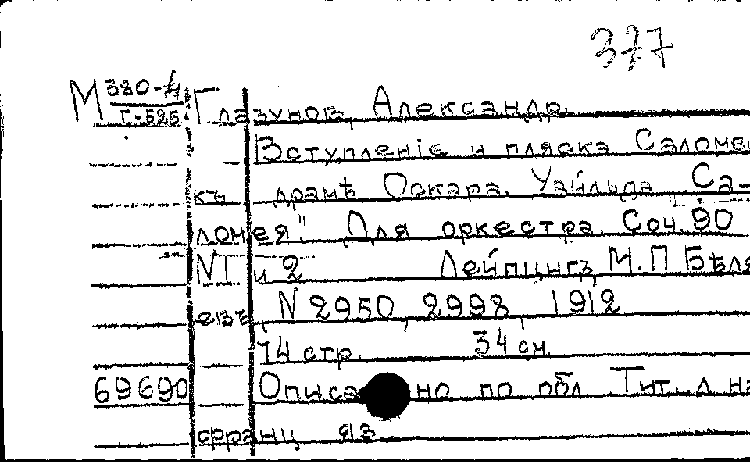 377
М 380-4
Г-525
Глазуновъ, Александръ
Вступленіе и пляска Саломеи
къ драмѣ Оскара Уайльда „Са-
ломея". Для оркестра. Соч. 90
N1 и 2 Лейпцигъ, М. П. Бѣля
евъ, N 2950, 2998, 1912
74 стр. 34 см.
69690 Описано по обл. Тит. л на
франц яз